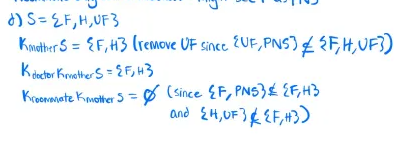 d) S= {F, H, UF}
K mother S = {F, H} (remove UF since {UF, PNS} ⊄ {F, H, UF})
K doctor K mother S = {F, H}
K roommate K mother S = ∅ (since {F, PNS} ⊄ {F, H}
and {H, UF} ⊄ {F, H})